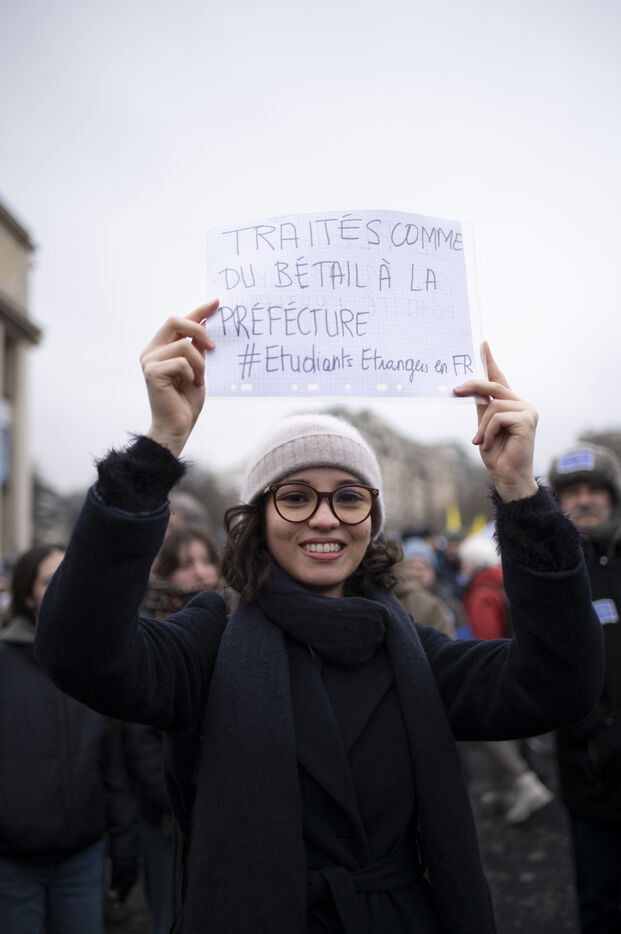 TRAITÉS COMME
DU BÉTAIL À LA
PRÉFÉCTURE
#Etudiants Etrangers en FR